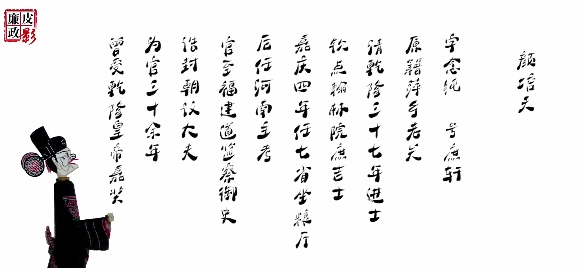 颜培天
字念纯 号庶轩
原籍萍乡芦关
清乾隆三十七年进士
钦点翰林院庶吉士
嘉庆四年任七省坐粮厅
后任河南主考
官至福建道监察御史
诰封朝议大夫
为官三十余年
曾受乾隆皇帝嘉奖
廉政
皮影